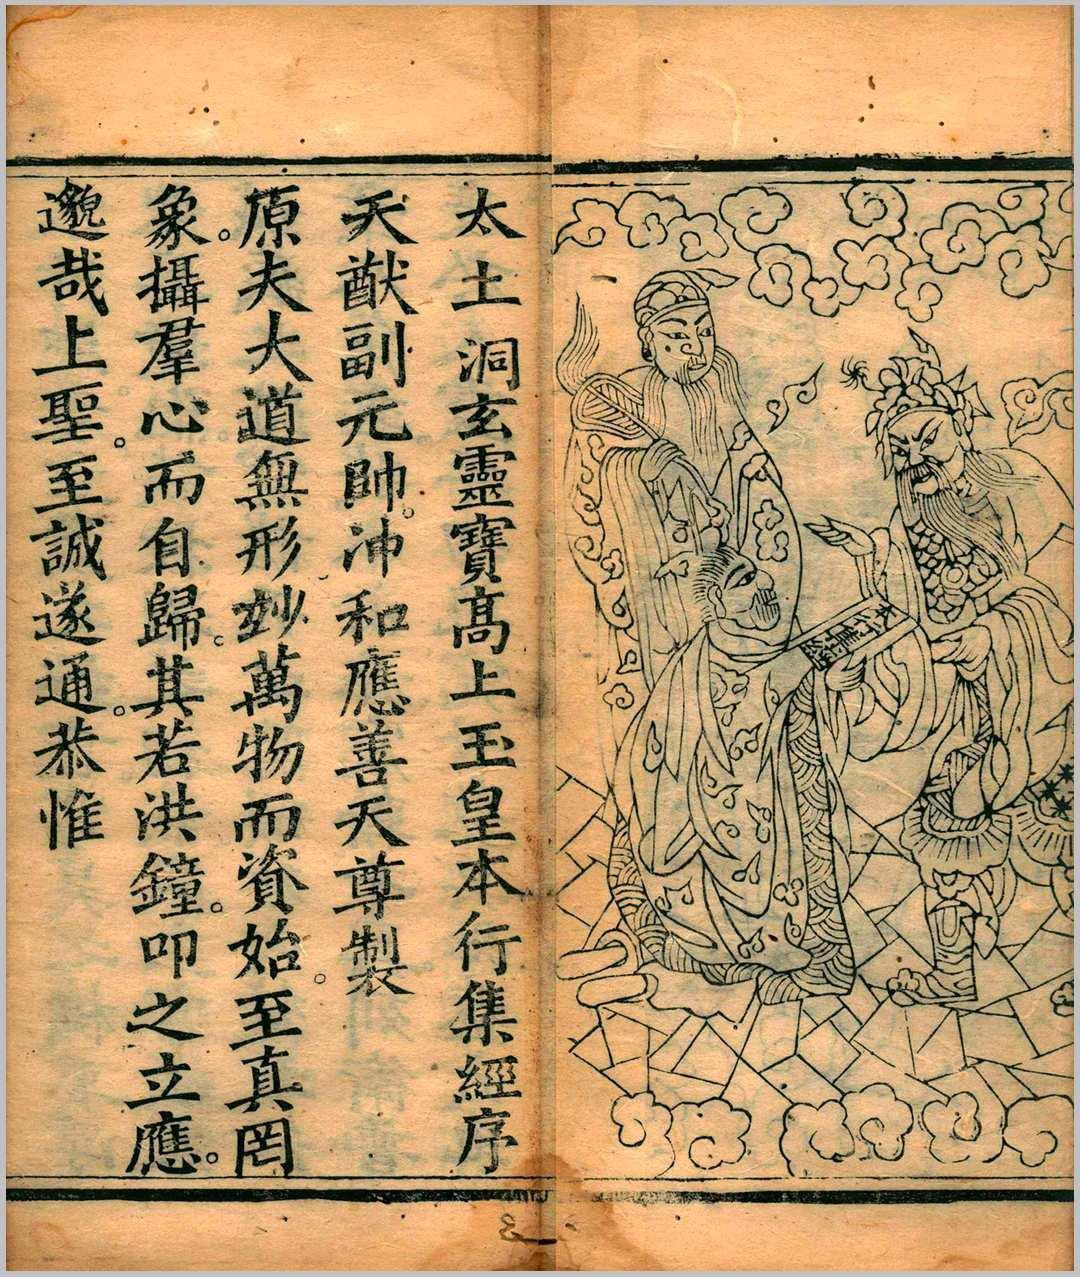 本行集經
太土洞玄靈寶髙上玉皇本行集經序
天猷副元帥。冲和應善天尊製
原夫大道無形妙萬物而資始。至真罔
象。攝羣心而自歸。其若洪鐘。叩之立應。
邈哉上聖。至誠遂通。恭惟